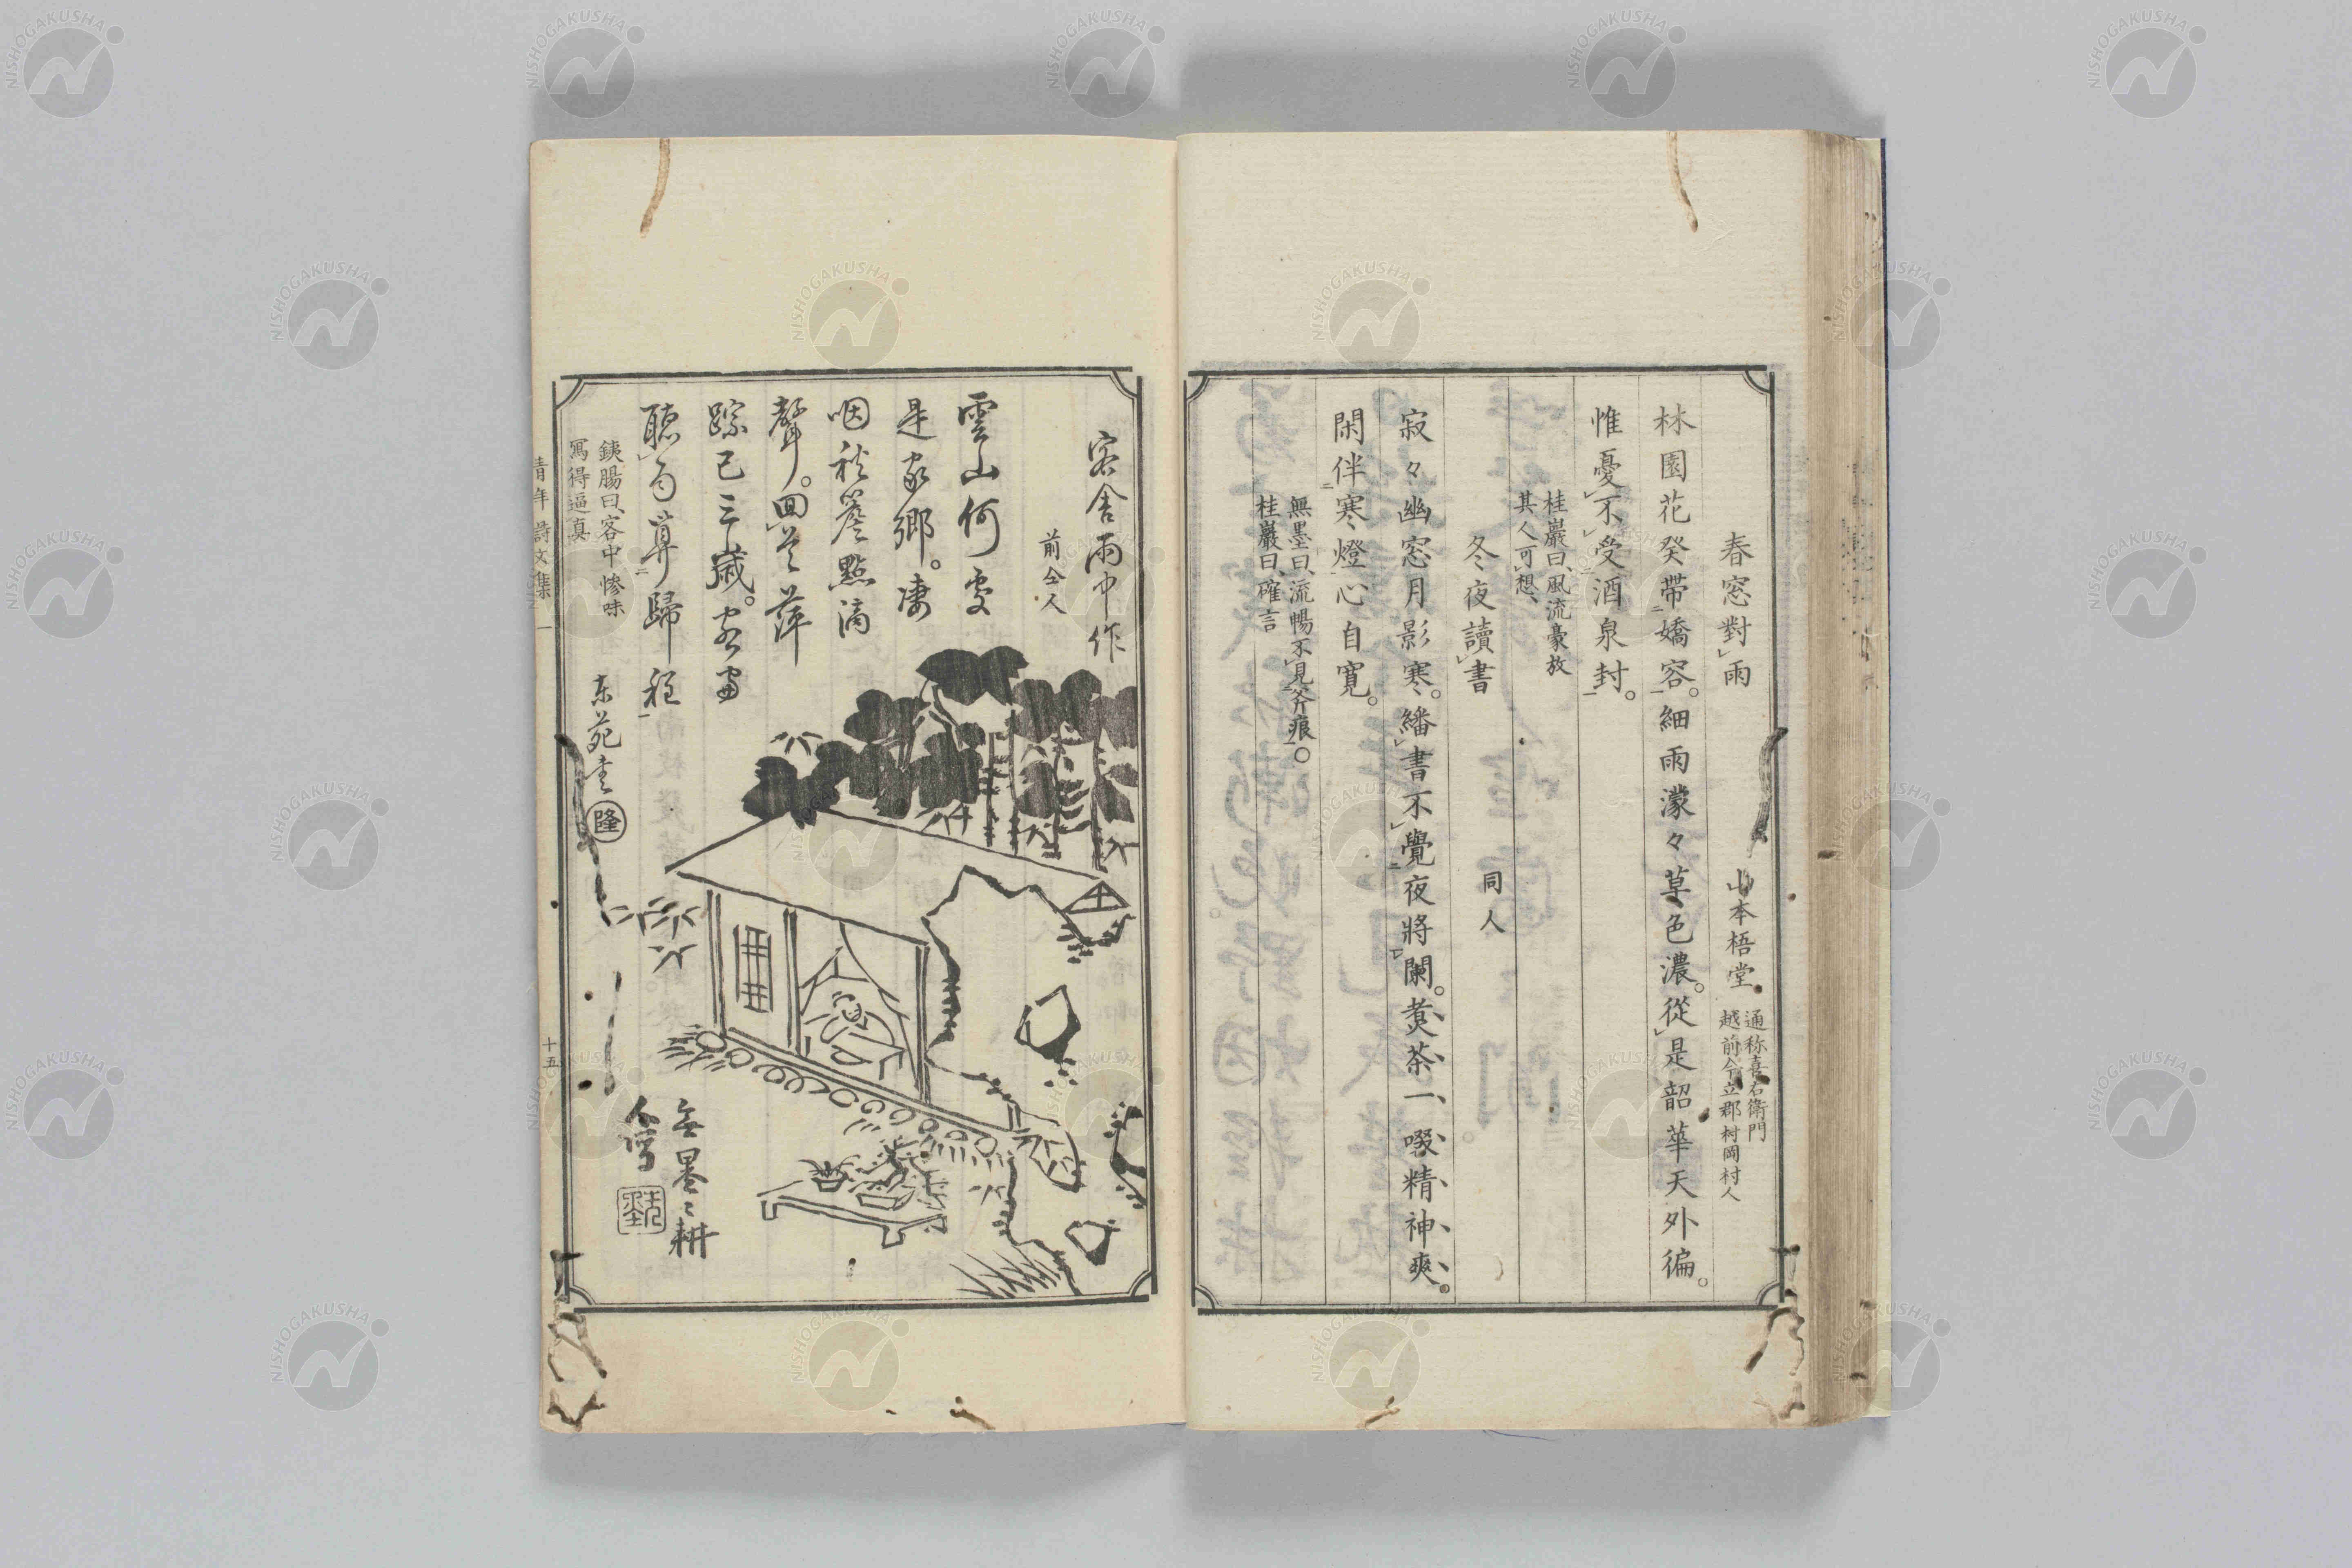 春窓對雨
山本梧堂
通称喜右衛門
越前今立郡村岡村人
林園花癸帶嬌容。細雨濛々草色濃。從是韶華天外徧。
惟憂不受酒泉封。
桂巖曰、風流豪放
其人可想、
冬夜讀書
同人
寂々幽窓月影寒。繙書不覺夜將闌。煑茶一啜精神爽。
閑伴寒燈心自寬。
無墨曰、流暢不見斧痕。
桂巖曰、確言
客舎雨中作
前仝人
雲山何處
是家郷。凄
咽秋簷點滴
聲。回首萍
踪已三歳。客窓
聴雨算歸程
銕腸曰、客中惨味
寫得逼真
东苑
隆
無墨々耕
人寫
青年詩文集 一
十五
NISHOGAKUSHA